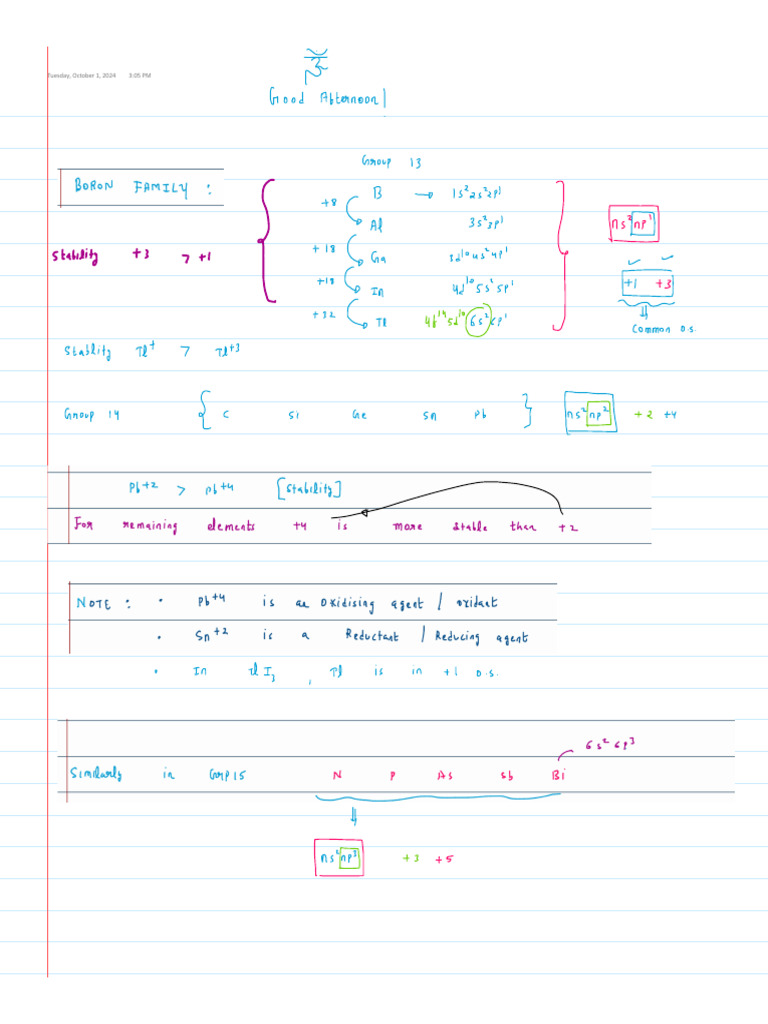 Tuesday, October 1, 2024 3:05 PM
Good Afternoon
Group 13
BORON FAMILY :
B → 1s² 2s² 2p¹
+8
Al 3s² 3p¹
ns² np¹
+18
Ga 3d¹⁰ 4s² 4p¹
Stability +3 > +1
+18
In 4d¹⁰ 5s² 5p¹
+1 +3
+32
Tl 4f¹⁴ 5d¹⁰ 6s² 6p¹
Common O.S.
Stablity Tl⁺ > Tl⁺³
Group 14 { C Si Ge Sn Pb } ns² np² +2 +4
Pb⁺² > Pb⁺⁴ [Stability]
For remaining elements +4 is more stable than +2
NOTE : • Pb⁺⁴ is an oxidising agent / oxidant
• Sn⁺² is a Reductant / Reducing agent
• In TlI₃, Tl is in +1 O.S.
6s² 6p³
Similarly in Grp 15 N P As Sb Bi
⇓
ns² np³ +3 +5